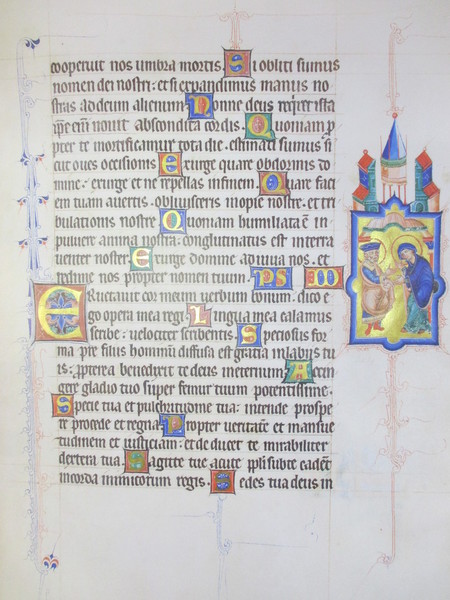 cooperuit nos umbra mortis. Si obliti sumus
nomen dei nostri: et si expandimus manus no
stras ad deum alienum. Nonne deus requiret ista
ipse enim novit abscondita cordis. Quoniam pro
pter te mortificamur tota die: estimati sumus si
cut oves occisionis. Exurge quare obdormis do
mine: exurge et ne repellas in finem. Quare faci
em tuam avertis: oblivisceris inopie nostre et tri
bulationis nostre. Quoniam humiliata est in
pulvere anima nostra: conglutinatus est in terra
venter noster. Exurge domine adiuva nos: et
redime nos propter nomen tuum. PS M
Eructavit cor meum verbum bonum: dico e
go opera mea regi. Lingua mea calamus
scribe: velociter scribentis. Speciosus for
ma pre filiis hominum diffusa est gratia in labiis tu
is: propterea benedixit te deus in eternum. Accin
gere gladio tuo super femur tuum potentissime.
Specie tua et pulchritudine tua: intende prospe
re procede et regna. Propter veritatem et mansue
tudinem et iusticiam: et deducet te mirabiliter
dextera tua. Sagitte tue acute populi sub te cadent
in corda inimicorum regis. Sedes tua deus in